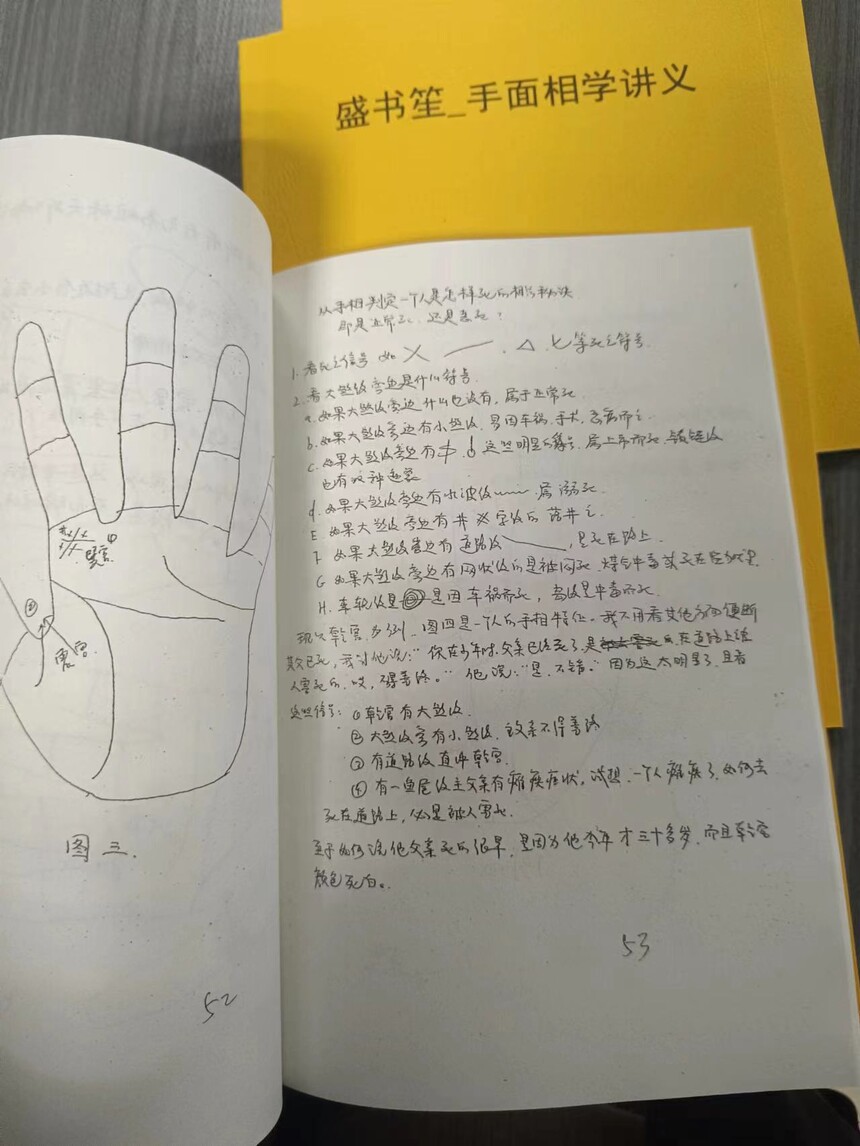 盛书笙_手面相学讲义
巽宫
①
②
震宫
图三.
52
从手相判定一个人是怎样死的相法秘诀
即是正常死.还是恶死?
1.看死之信号 如 × 、△、七等死之符号.
2.看大熟纹旁边是什么符号.
a.如果大熟纹旁边什么也没有,属于正常死.
b.如果大熟纹旁边有小熟纹.多因车祸,手术,恶病而亡.
c.如果大熟纹旁边有 这些明显的符号.属上吊而死
也有这种迹象
d.如果大熟纹旁边有水波纹 属溺死.
E.如果大熟纹旁边有井 字纹的 落井亡.
F 如果大熟纹旁边有道路纹 ,是死在路上.
G 如果大熟纹旁边有网状纹的是被闷死.煤气中毒或死在
H.车轮纹是 是因车祸而死,
现以乾宫为例.图四是一个人的手相特征.我不用看其他方面便断
其父已死,我对他说:"你在少年时,父亲已经去了.是 在道路上被
人害死的.哎,不得善终。"他说:"是.不错。"因为这太明显了.且看
这些信号:①乾宫有大熟纹.
②大熟纹旁有小熟纹.主父亲不得善终
③有道路纹直冲乾宫.
④有一鱼尾纹主父亲有瘫痪症状,试想.一个人瘫痪了.如何去
死在道路上,必是被人害死.
至于如何说他父亲死的很早.是因为他今年才三十多岁.而且乾宫
颜色死白。
53